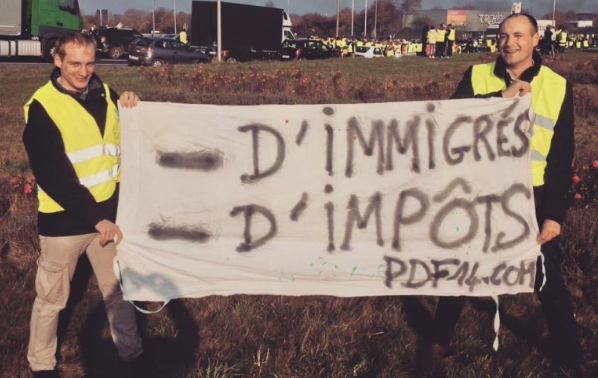 - D'IMMIGRÉS
- D'IMPÔTS
PDF14.COM